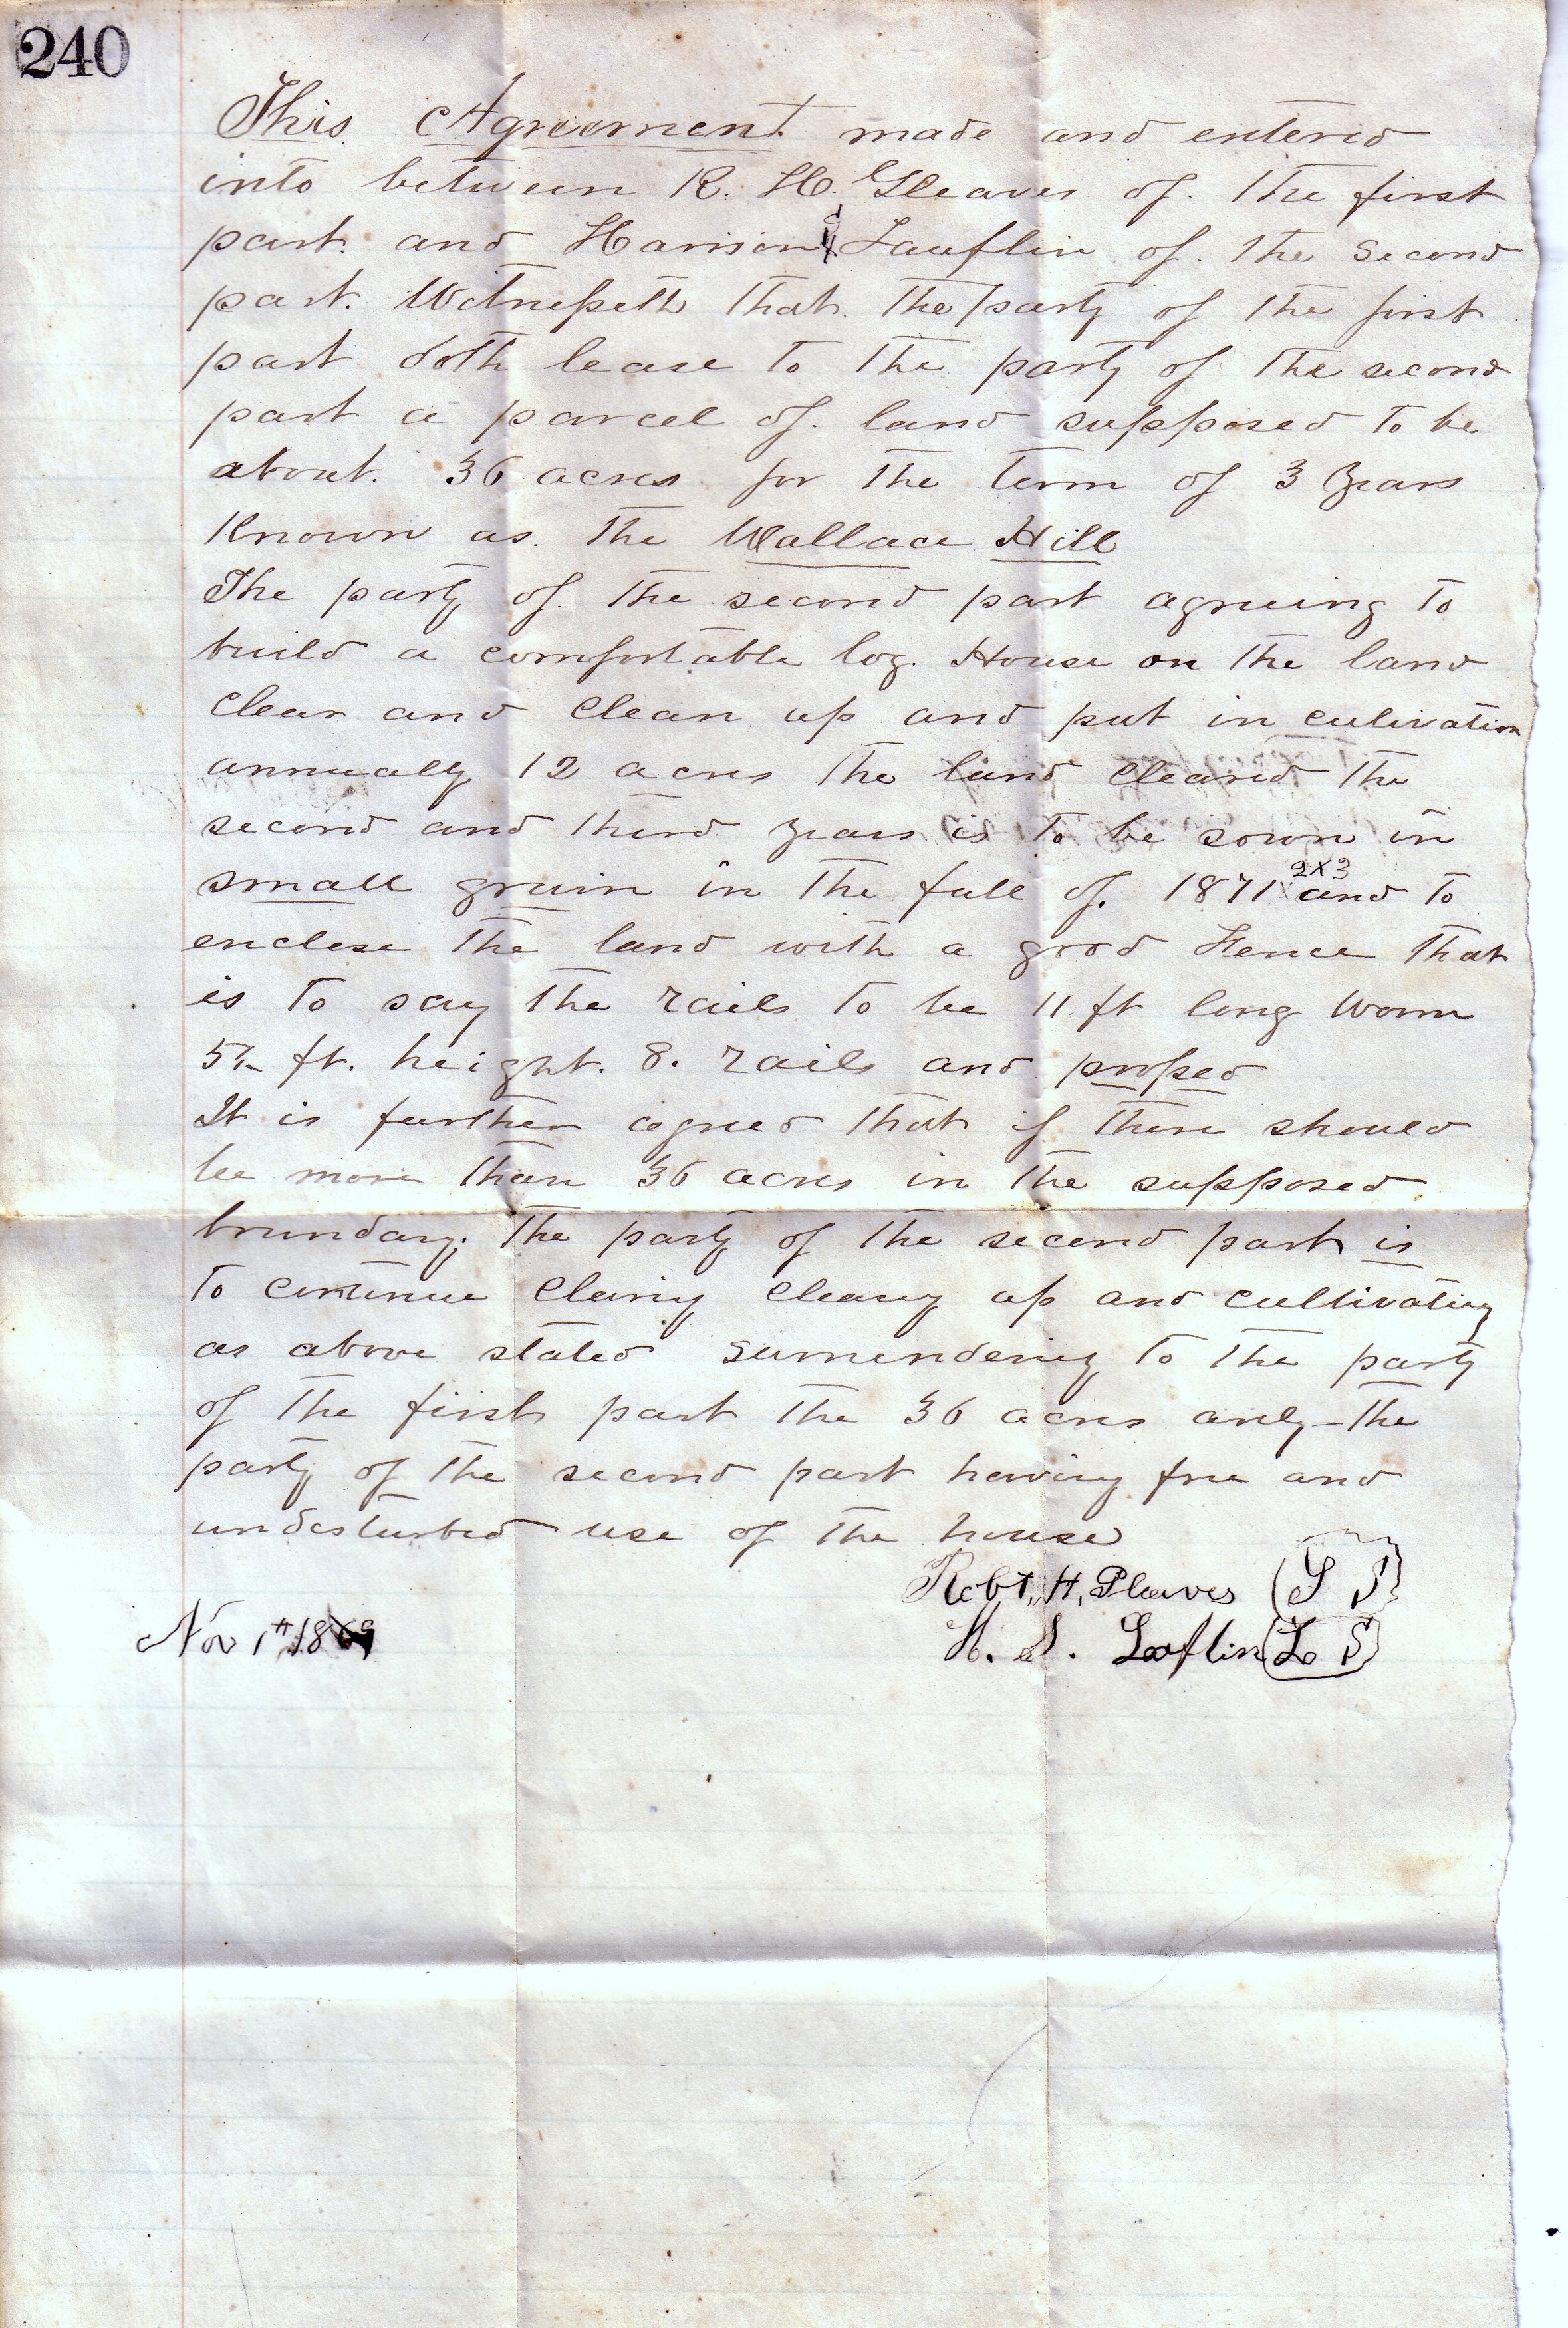 240
This Agreement made and entered
into between R. H. Gleaves of the first
part and Harrison Lauflin of the Second
part. Witnesseth that the party of the first
part doth lease to the party of the second
part a parcel of land supposed to be
about 36 acres for the term of 3 years
Known as the Wallace Hill
The party of the second part agreeing to
build a comfortable log House on the land
clear and clean up and put in cultivation
annually 12 acres the land cleared the
second and third years is to be sown in
small grain in the fall of 1871 2x3 and to
enclose the land with a good Fence that
is to say the rails to be 11 ft long worm
5½ ft. height. 8. rails and proped
It is further agreed that if there should
be more than 36 acres in the supposed
boundary. the party of the second part is
to continue clering cleang up and cultivating
as above stated surrendering to the party
of the first part the 36 acres only - the
party of the second part having free and
undesturbed use of the house
Robt. H. Gleaves (L S)
Nov 1st 1869
H. S. Laflin (L S)